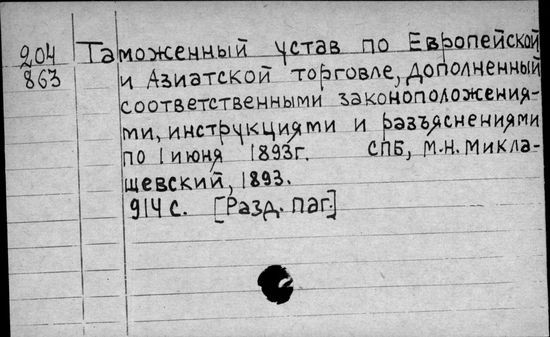 204 Таможенный устав по Европейской
863 и Азиатской торговле, дополненный
соответственными законоположения-
ми, инструкциями и разъяснениями
по 1 июня 1893г. СПБ, М.Н. Микла-
шевский, 1893.
914 с. [Разд. паг.]